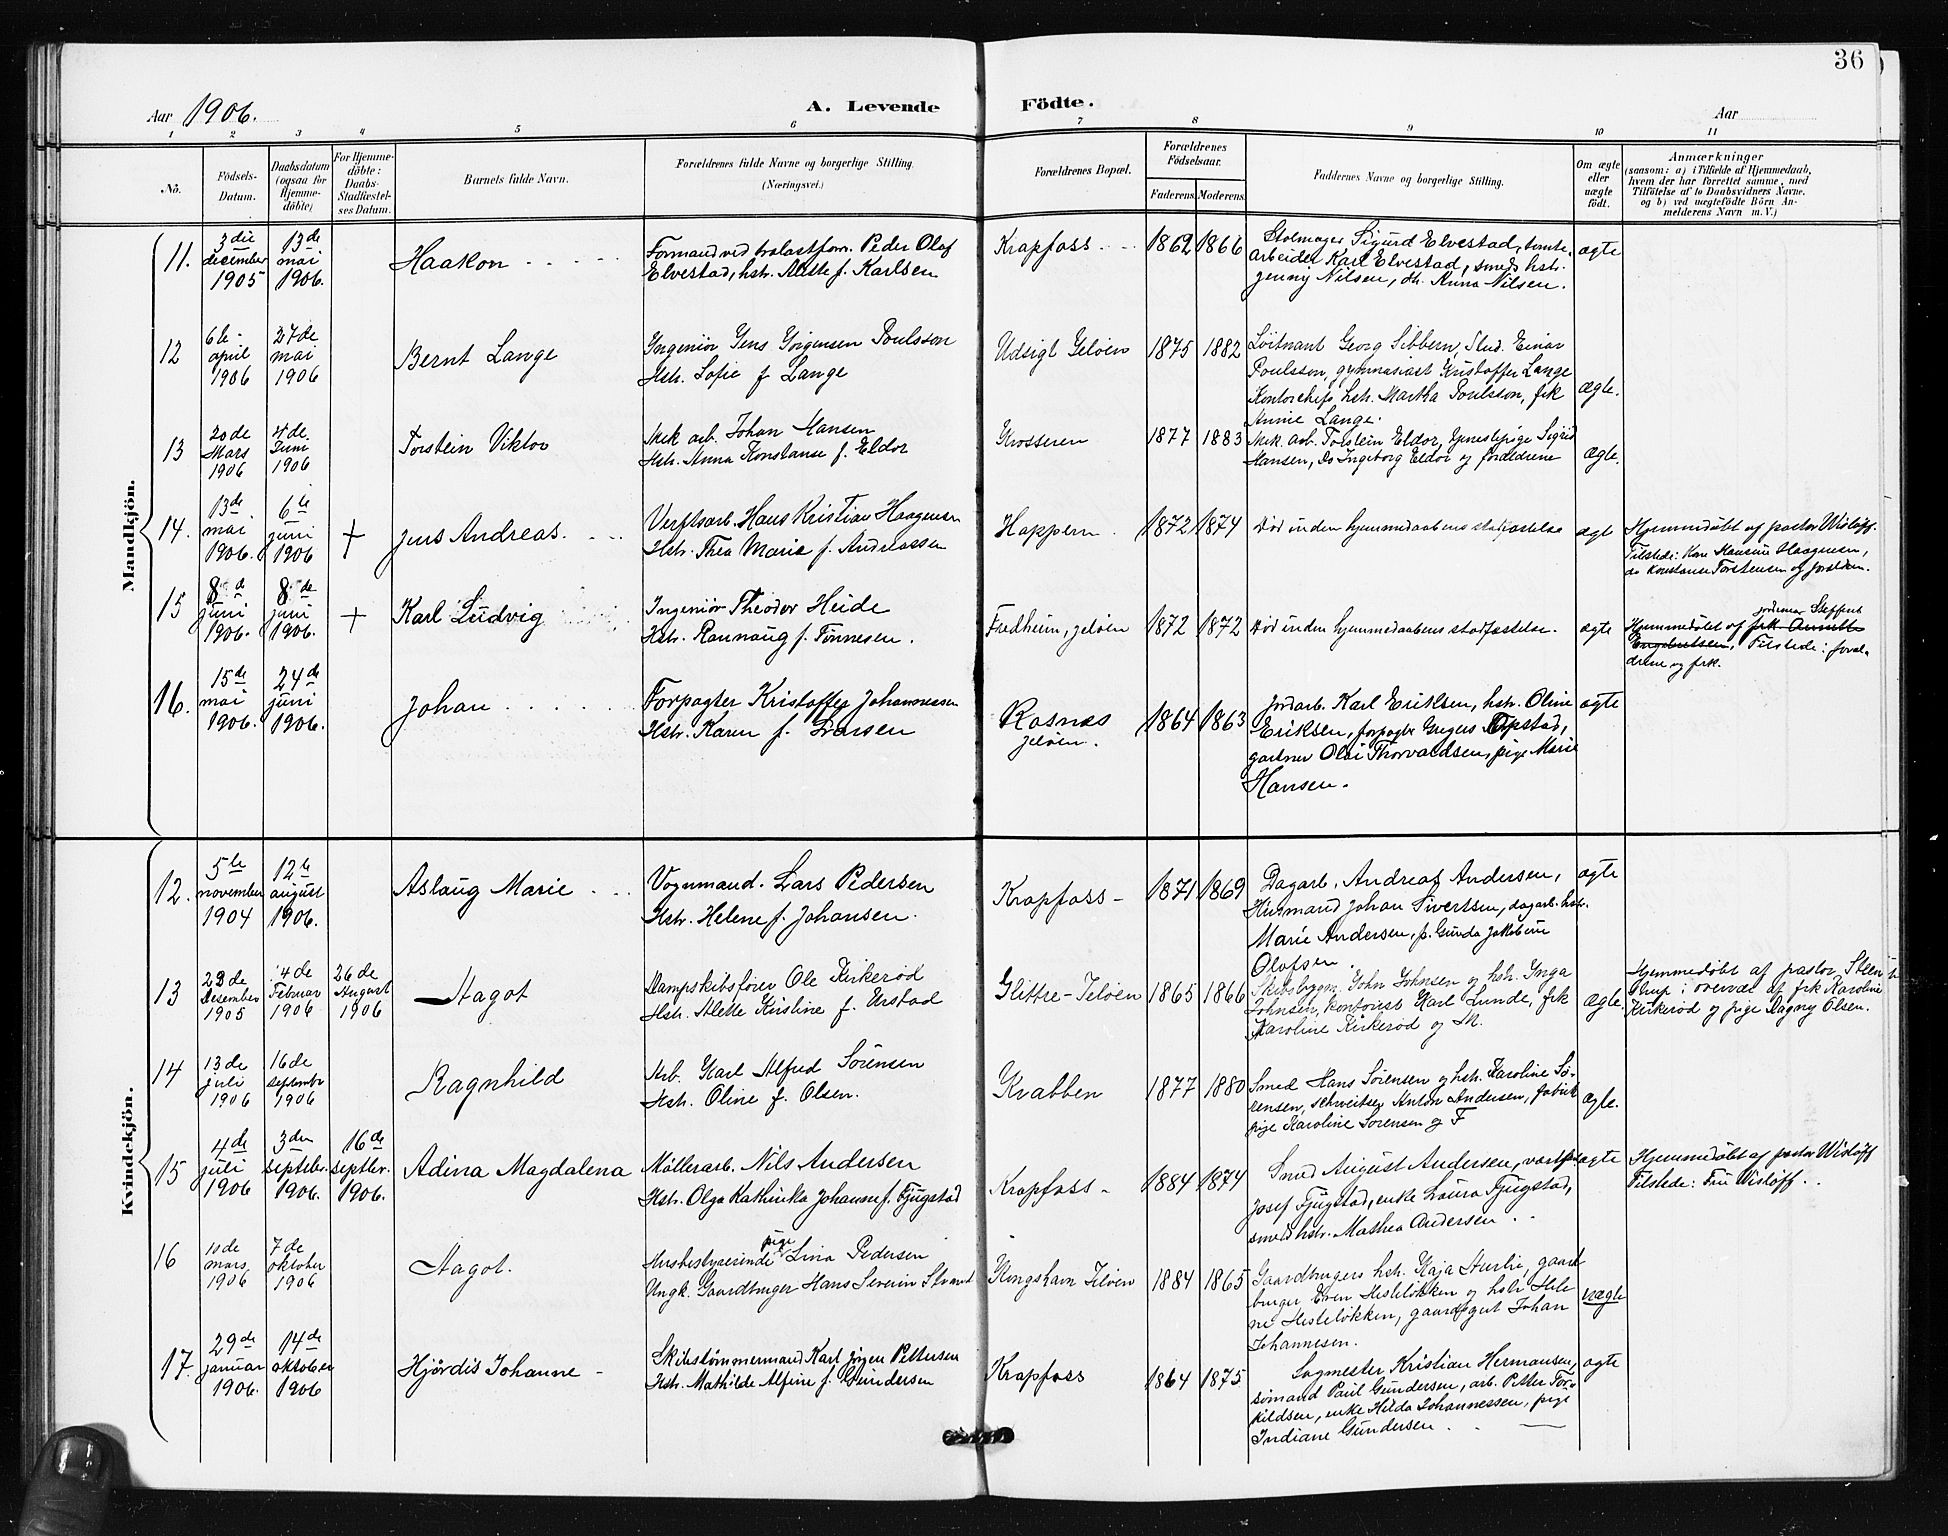 36
Aar 1906.
A. Levende Födte.
Aar
1 2 3 4 5 6 7 8 9 10 11
No.
Födsels-
Datum.
Daabsdatum
(ogsaa for
Hjemme-
döbte)
For Hjemme-
döbte:
Daabs-
Stadfæstel-
ses Datum.
Barnets fulde Navn.
Forældrenes fulde Navne og borgerlige Stilling.
(Næringsvei.)
Forældrenes Bopæl.
Forældrenes
Födselsaar.
Faderens. Moderens.
Faddernes Navne og borgerlige Stilling.
Om ægte
eller
uægte
födt.
Anmærkninger
(saasom: a) i Tilfælde af Hjemmedaab,
hvem der har forrettet samme, med
Tilföielse af to Daabsvidners Navne,
og b) ved uægtefödte Börn An-
melderens Navn m. V.)
Mandkjön.
11.
3die
december
1905
13de
mai
1906.
Haakon
Formand ved Peder Olaf
Elvestad, hstr. f. Karlsen
Krapfoss
1862 1866
Stolmager Sigurd Elvestad, tomte-
arbeider Karl Elvestad, smeds hstr.
Jenny Nilsen, Anna Nilsen.
ægte
12
6te
april
1906
27de
mai
1906
Bernt Lange
Ingeniör Jens Jörgensen Poulsson
Hstr. Sofie f Lange
Udsigt Jelöen
1875 1882
Löitnant Georg Sibbern, Stud. Einar
Poulsson, gymnasiast Kristoffer Lange
Kontorchefs hstr. Martha Poulsson, frk
Annie Lange.
ægte.
13
20de
Mars
1906
4de.
Juni
1906
Torstein Viktor
Mek arb. Johan Hansen
Hstr. Anna Konstanse f. Eldor
Krosseren
1877 1883
Mek. arb. Torstein Eldor, tjenestepige Sigrid
Hansen, Do Ingeborg Eldor og forældrene
ægte.
14.
13de
mai
1906.
6te
juni
1906
+
Jens Andreas.
Verftsarb. Hans Kristian Haagensen
Hstr. Thea Marie f. Andreassen
Happern.
1872 1874
Död inden hjemmedaabens stadfæstelse
ægte
Hjemmedöbt af pastor Wislöff.
Tilstede: Hansine Haagensen,
do Konstanse Torstensen og foreldren.
15
8de
juni
1906.
8de
juni
1906.
+
Karl Ludvig
Ingeniör Theodor Heide
Hstr. Rannaug f. Tönnesen.
Fredheim, Jelöen
1872 1872
Död inden hjemmedaabens stadfæstelse.
ægte
jordemor Steffens
Hjemmedöbt af frk Annette
Engebretsen, Tilstede: foræl-
drene og frk.
16.
15de
mai
1906.
24de
juni
1906.
Johan
Forpagter Kristoffer Johannessen
Hstr. Karen f. Larsen
Rosnæs
Jelöen.
1864 1863
Jordarb. Karl Eriksen, hstr. Oline
Eriksen, forpagter Gregers Opstad,
gartner Olai Thorvaldsen, pige Marie
Hansen.
ægte
Kvindekjön.
12.
5te
november
1904
12te
august
1906.
Aslaug Marie
Vognmand. Lars Pedersen
Hstr. Helene f. Johansen.
Krapfoss
1871 1869
Dagarb. Andreas Andersen,
Husmand Johan Sivertsen, dagarb. hstr.
Marie Andersen, p. Gunda Jakobine
Olafsen.
ægte
13
23de
Desember
1905
4de
Februar
1906
26de
August
1906
Aagot
Dampskibsförer Ole Kirkeröd
Hstr. Alette Kirstine f. Enstad
Glittre-Jelöen
1865 1866
Skibsbygm. John Johnsen og hstr. Inga
Johnsen, kontorist Karl Lunde, frk
Karoline Kirkeröd og M.
ægte
Hjemmedöbt af pastor Steen-
strup i overvær af frk Karoline
Kirkeröd og pige Dagny Olsen.
14
13de
juli
1906
16de
september
1906
Ragnhild
Arb. Karl Alfred Sörensen
Hstr. Oline f. Olsen.
Krabben
1877 1880
Smed Hans Sörensen og hstr. Karoline Sö-
rensen, schweitser Anton Andersen, fabrik
pige Karoline Sörensen og F
ægte.
15
4de
juli
1906
3den
septebr.
1906.
16de
septbr.
1906.
Adina Magdalena
Möllerarb. Nils Andersen
Hstr. Olga Kathinka Johanne f. Fjugstad
Krapfoss
1884 1874
Smed August Andersen,
Josef Fjugstad, enke Laura Fjugstad,
smeds hstr. Mathea Andersen
ægte
Hjemmedöbt af pastor Wislöff
Tilstede: Fru Wislöff.
16
10de
mars
1906
7de
oktober
1906
Aagot.
pige
Husbestyrerinde Lina Pedersen
Ungk. Gaardbruger Hans Severin
Kongshavn Jelöen
1884 1865
Gaardbrugers hstr. Kaja Hurlie, gaard-
bruger Even Hestelökken og hstr Hele
ne Hestelökken, Johan
Johannesen.
uægte
17.
29de
januar
1906.
14de
oktober
1906
Hjördis Johanne
Skibstömmermand Karl Jörgen Pettersen
Hstr. Mathilde Alfine f. Gundersen
Krapfoss
1864 1875
Sagmester Kristian Hermansen,
sömand Paul Gundersen, arb. Petter Tor-
kildsen, enke Hilda Johannessen, pige
Indiane Gundersen
ægte